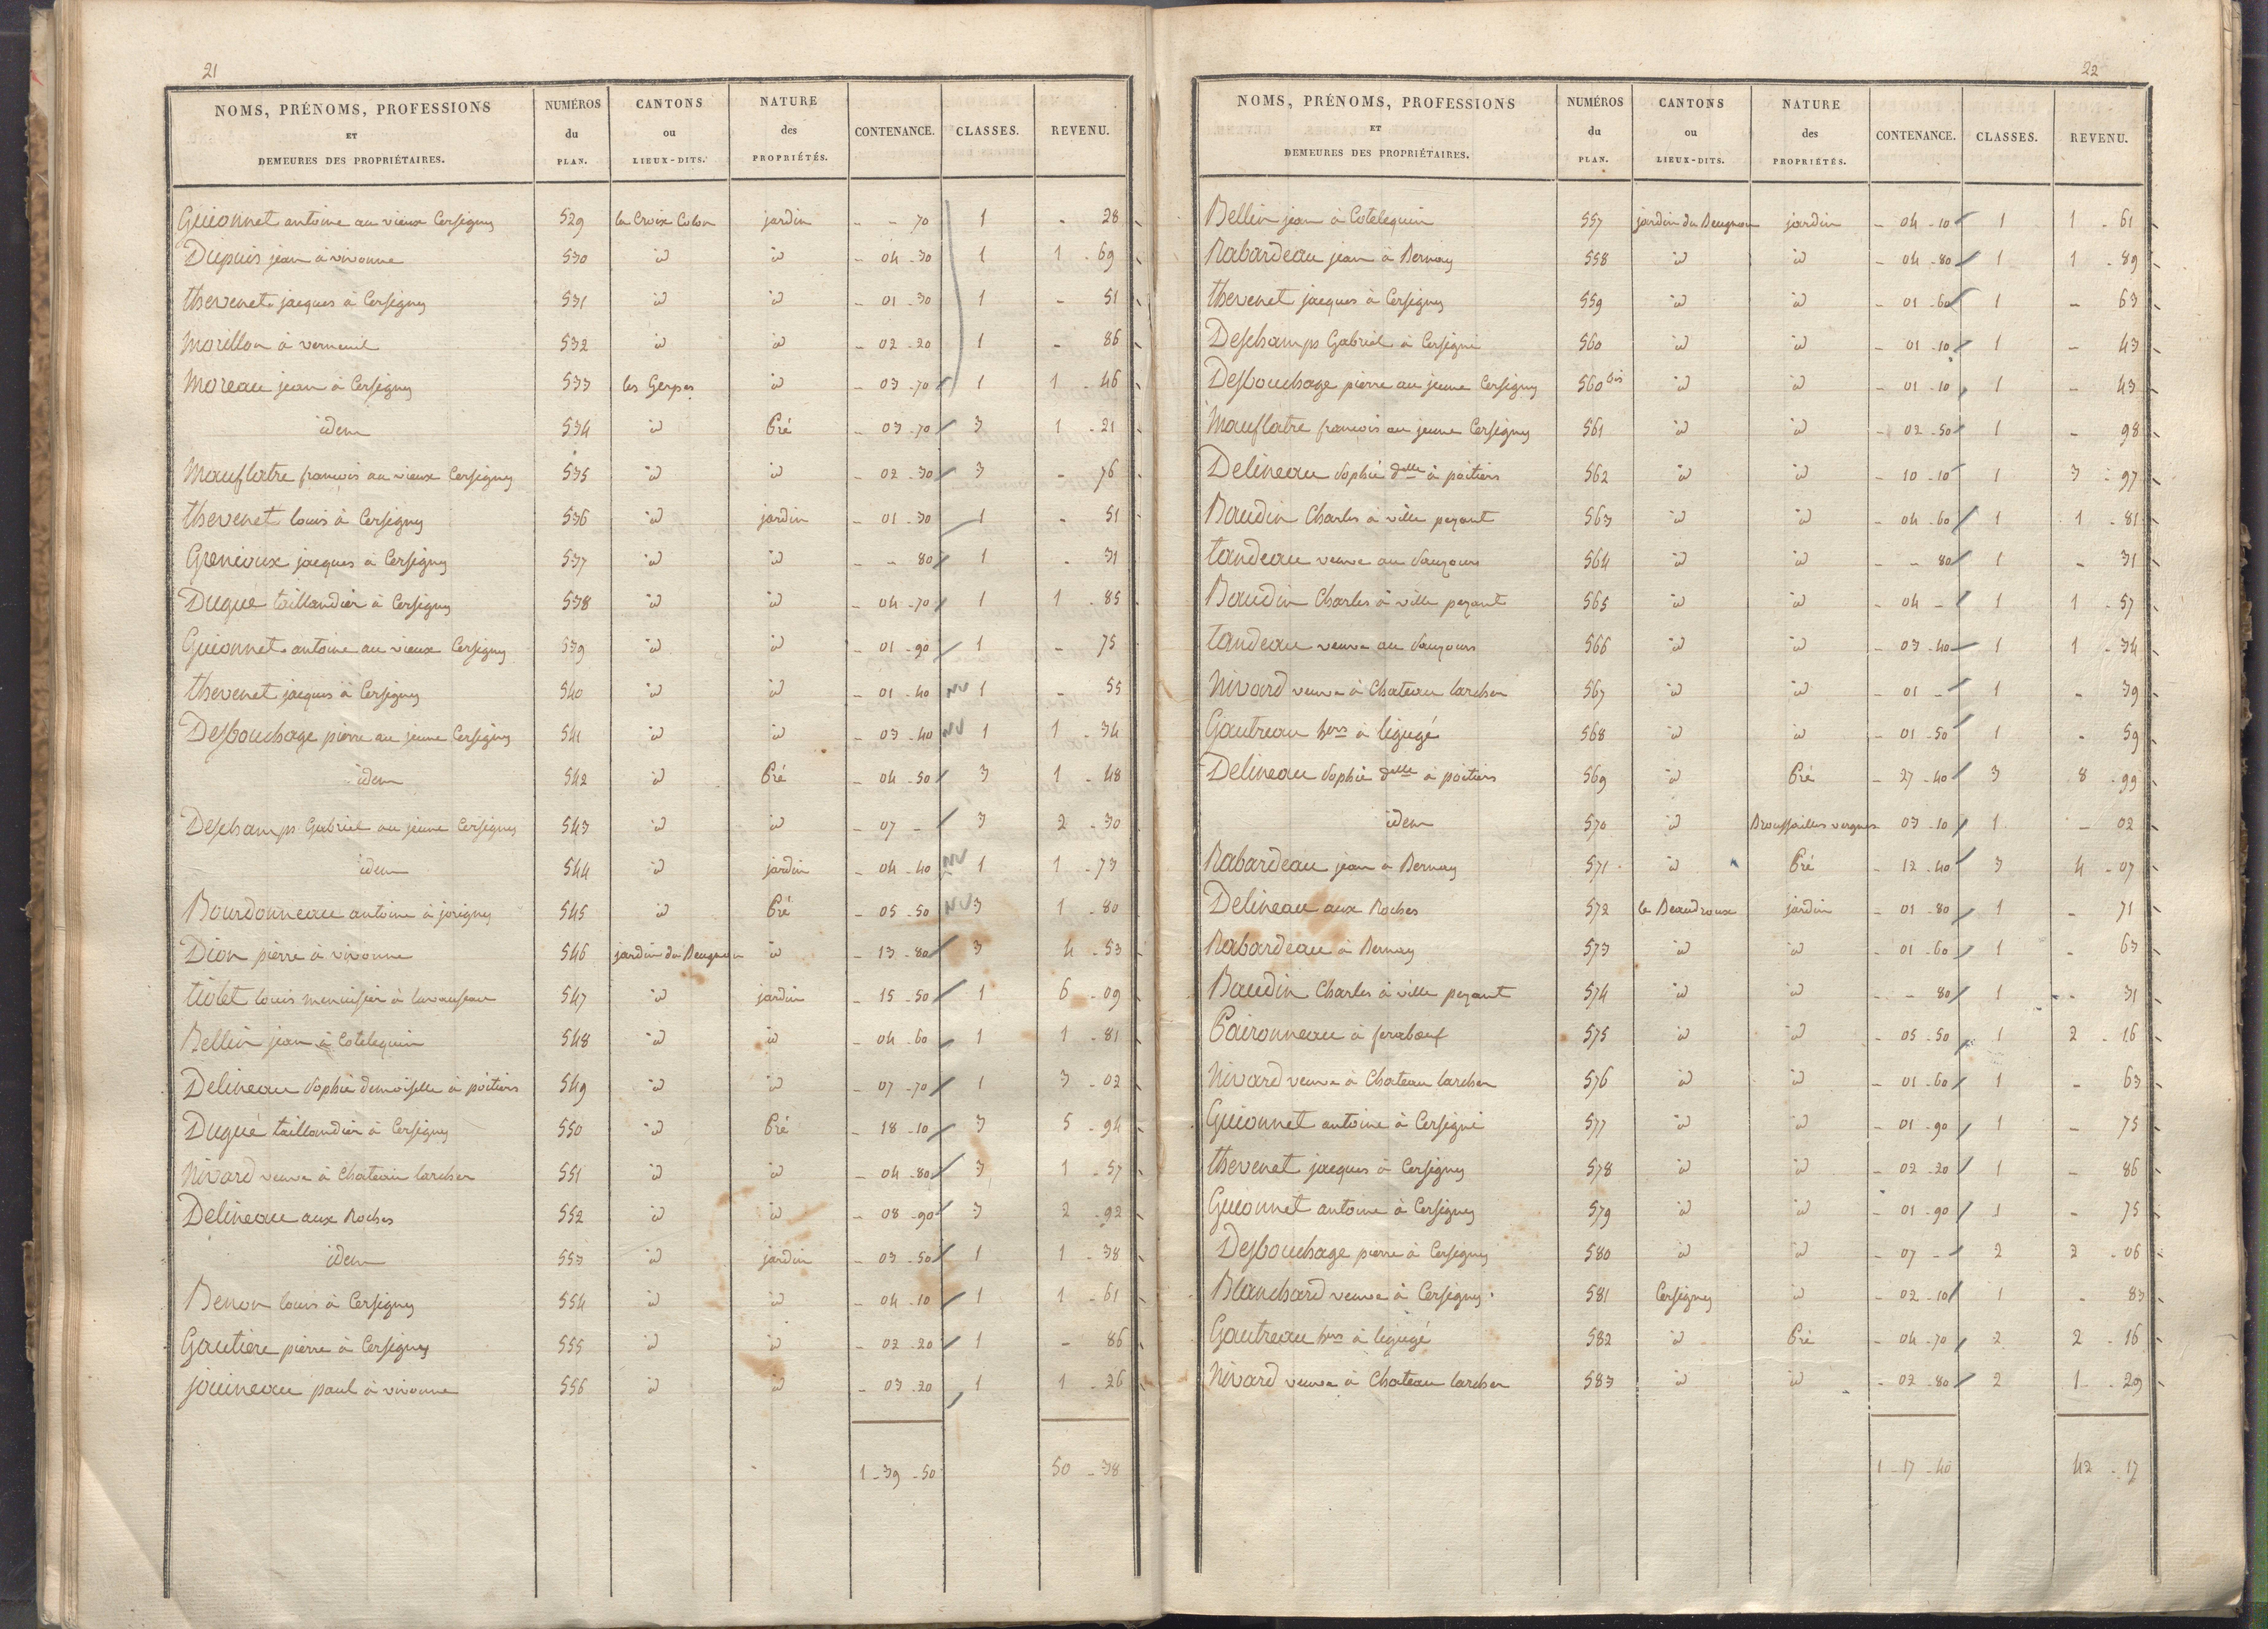 21
NOMS, PRÉNOMS, PROFESSIONS ET DEMEURES DES PROPRIÉTAIRES. | NUMÉROS du PLAN. | CANTONS ou LIEUX-DITS. | NATURE des PROPRIÉTÉS. | CONTENANCE. | CLASSES. | REVENU.
Guionnet antoine au vieux Cersigny 529 la Croix Colon jardin - - 70 1 - 28
Dupuis jean à vivonne 530 id id - 04 - 30 1 1 - 69
thevenet jacques à Cersigny 531 id id - 01 - 30 1 - 51
Morillon à verneuil 532 id id - 02 - 20 1 - 86
Moreau jean à Cersigny 533 les Gerpes id - 03 - 70 1 1 - 46
idem 534 id Pré - 03 - 70 3 1 - 21
Mauflatre francois au vieux Cersigny 535 id id - 02 - 30 3 - 76
thevenet louis à Cersigny 536 id jardin - 01 - 30 1 - 51
Grenioux jacques à Cersigny 537 id id - - 80 1 - 31
Dugué taillandier à Cersigny 538 id id - 04 - 70 1 1 - 85
Guionnet antoine au vieux Cersigny 539 id id - 01 - 90 1 - 75
thevenet jacques à Cersigny 540 id id - 01 - 40 NV 1 - 55
Desbouchage pierre au jeune Cersigny 541 id id - 03 - 40 NV 1 1 - 34
idem 542 id Pré - 04 - 50 3 1 - 48
Deschamps Gabriel au jeune Cersigny 543 id id - 07 - 3 2 - 30
idem 544 id jardin - 04 - 40 NV 1 1 - 73
Bourdonneau antoine à jorigny 545 id Pré - 05 - 50 NV 3 1 - 80
Dion pierre à vivonne 546 jardin du Beugnon id - 13 - 80 3 4 - 53
tiolet louis menuisier à lavauseau 547 id jardin - 15 - 50 1 6 - 09
Bellin jean à Cotelequin 548 id id - 04 - 60 1 1 - 81
Delineau Sophie demoiselle à poitiers 549 id id - 07 - 70 1 3 - 02
Dugué taillandier à Cersigny 550 id Pré - 18 - 10 3 5 - 94
Nivard veuve à Chateau larcher 551 id id - 04 - 80 3 1 - 57
Delineau aux Roches 552 id id - 08 - 90 3 2 - 92
idem 553 id jardin - 03 - 50 1 1 - 38
Benon louis à Cersigny 554 id id - 04 - 10 1 1 - 61
Gautiere pierre à Cersigny 555 id id - 02 - 20 1 - 86
jouineau paul à vivonne 556 id id - 03 - 20 1 1 - 26
1 - 39 - 50 50 - 38
22
NOMS, PRÉNOMS, PROFESSIONS ET DEMEURES DES PROPRIÉTAIRES. | NUMÉROS du PLAN. | CANTONS ou LIEUX-DITS. | NATURE des PROPRIÉTÉS. | CONTENANCE. | CLASSES. | REVENU.
Bellin jean à Cotelequin 557 jardin du Beugnon jardin - 04 - 10 1 1 - 61
Rabardeau jean à Bernay 558 id id - 04 - 80 1 1 - 89
thevenet jacques à Cersigny 559 id id - 01 - 60 1 - 63
Deschamps Gabriel à Cersigni 560 id id - 01 - 10 1 - 43
Desbouchage pierre au jeune Cersigny 560 bis id id - 01 - 10 1 - 43
Mauflatre francois au jeune Cersigny 561 id id - 02 - 50 1 - 98
Delineau Sophie dlle à poitiers 562 id id - 10 - 10 1 3 - 97
Baudin Charles à ville pezant 563 id id - 04 - 60 1 1 - 81
tandeau veuve au 564 id id - - 80 1 - 31
Baudin Charles à ville pezant 565 id id - 04 - 1 1 - 57
tandeau veuve au 566 id id - 03 - 40 1 1 - 34
Nivard veuve à Chateau larcher 567 id id - 01 - 1 - 39
Gautreau hers à ligugé 568 id id - 01 - 50 1 - 59
Delineau Sophie dlle à poitiers 569 id Pré - 27 - 40 3 8 - 99
idem 570 id Broussailles vergnes 03 - 10 1 - 02
Rabardeau jean à Bernay 571 id Pré - 12 - 40 3 4 - 07
Delineau aux Roches 572 le Beaudroux jardin - 01 - 80 1 - 71
Rabardeau à Bernay 573 id id - 01 - 60 1 - 63
Baudin Charles à ville pezant 574 id id - - 80 1 - 31
Paironneau à ferabœuf 575 id id - 05 - 50 1 2 - 16
Nivard veuve à Chateau larcher 576 id id - 01 - 60 1 - 63
Guionnet antoine à Cersigni 577 id id - 01 - 90 1 - 75
thevenet jacques à Cersigny 578 id id - 02 - 20 1 - 86
Guionnet antoine à Cersigny 579 id id - 01 - 90 1 - 75
Desbouchage pierre à Cersigny 580 id id - 07 - 2 2 - 06
Blanchard veuve à Cersigny 581 Cersigny id - 02 - 10 1 - 83
Gautreau hers à ligugé 582 id Pré - 04 - 70 2 2 - 16
Nivard veuve à Chateau larcher 583 id id - 02 - 80 2 1 - 29
1 - 17 - 40 42 - 17